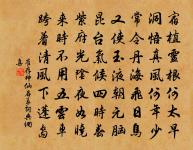 宿植靈根天上少
洞悟真風何太早
常令丹海飛日烏
又使玉液朝元腦
昆臺氣候四時春
紫府光陰夜如曉
來時不用五雲車
跨着清風下蓬島